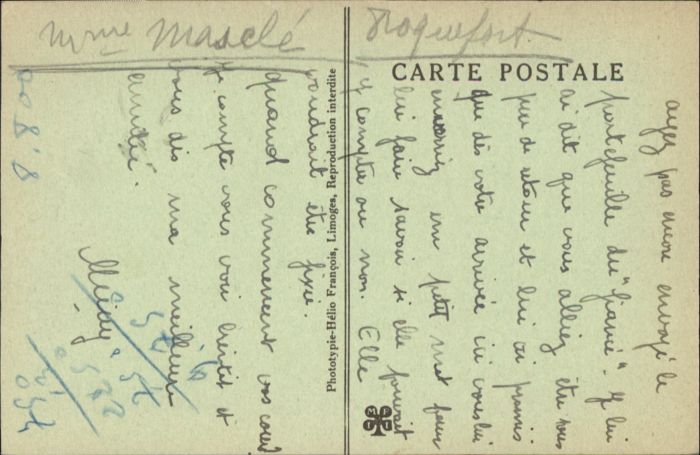 Mme Masclé
Roquefort
CARTE POSTALE
ayez pas encore envoyé le
portefeuille du "fiancé". Je lui
ai dit que vous alliez être sous
peu de retour et lui ai promis
que dès votre arrivée ici vous lui
enverriez un petit mot pour
lui faire savoir si elle pouvait
y compter ou non. Elle
voudrait être fixée.
quand commencent vos cours
Je compte vous voir bientôt et
vous dis ma meilleure
amitié.
Phototypie-Hélio François, Limoges, Reproduction interdite
8'800